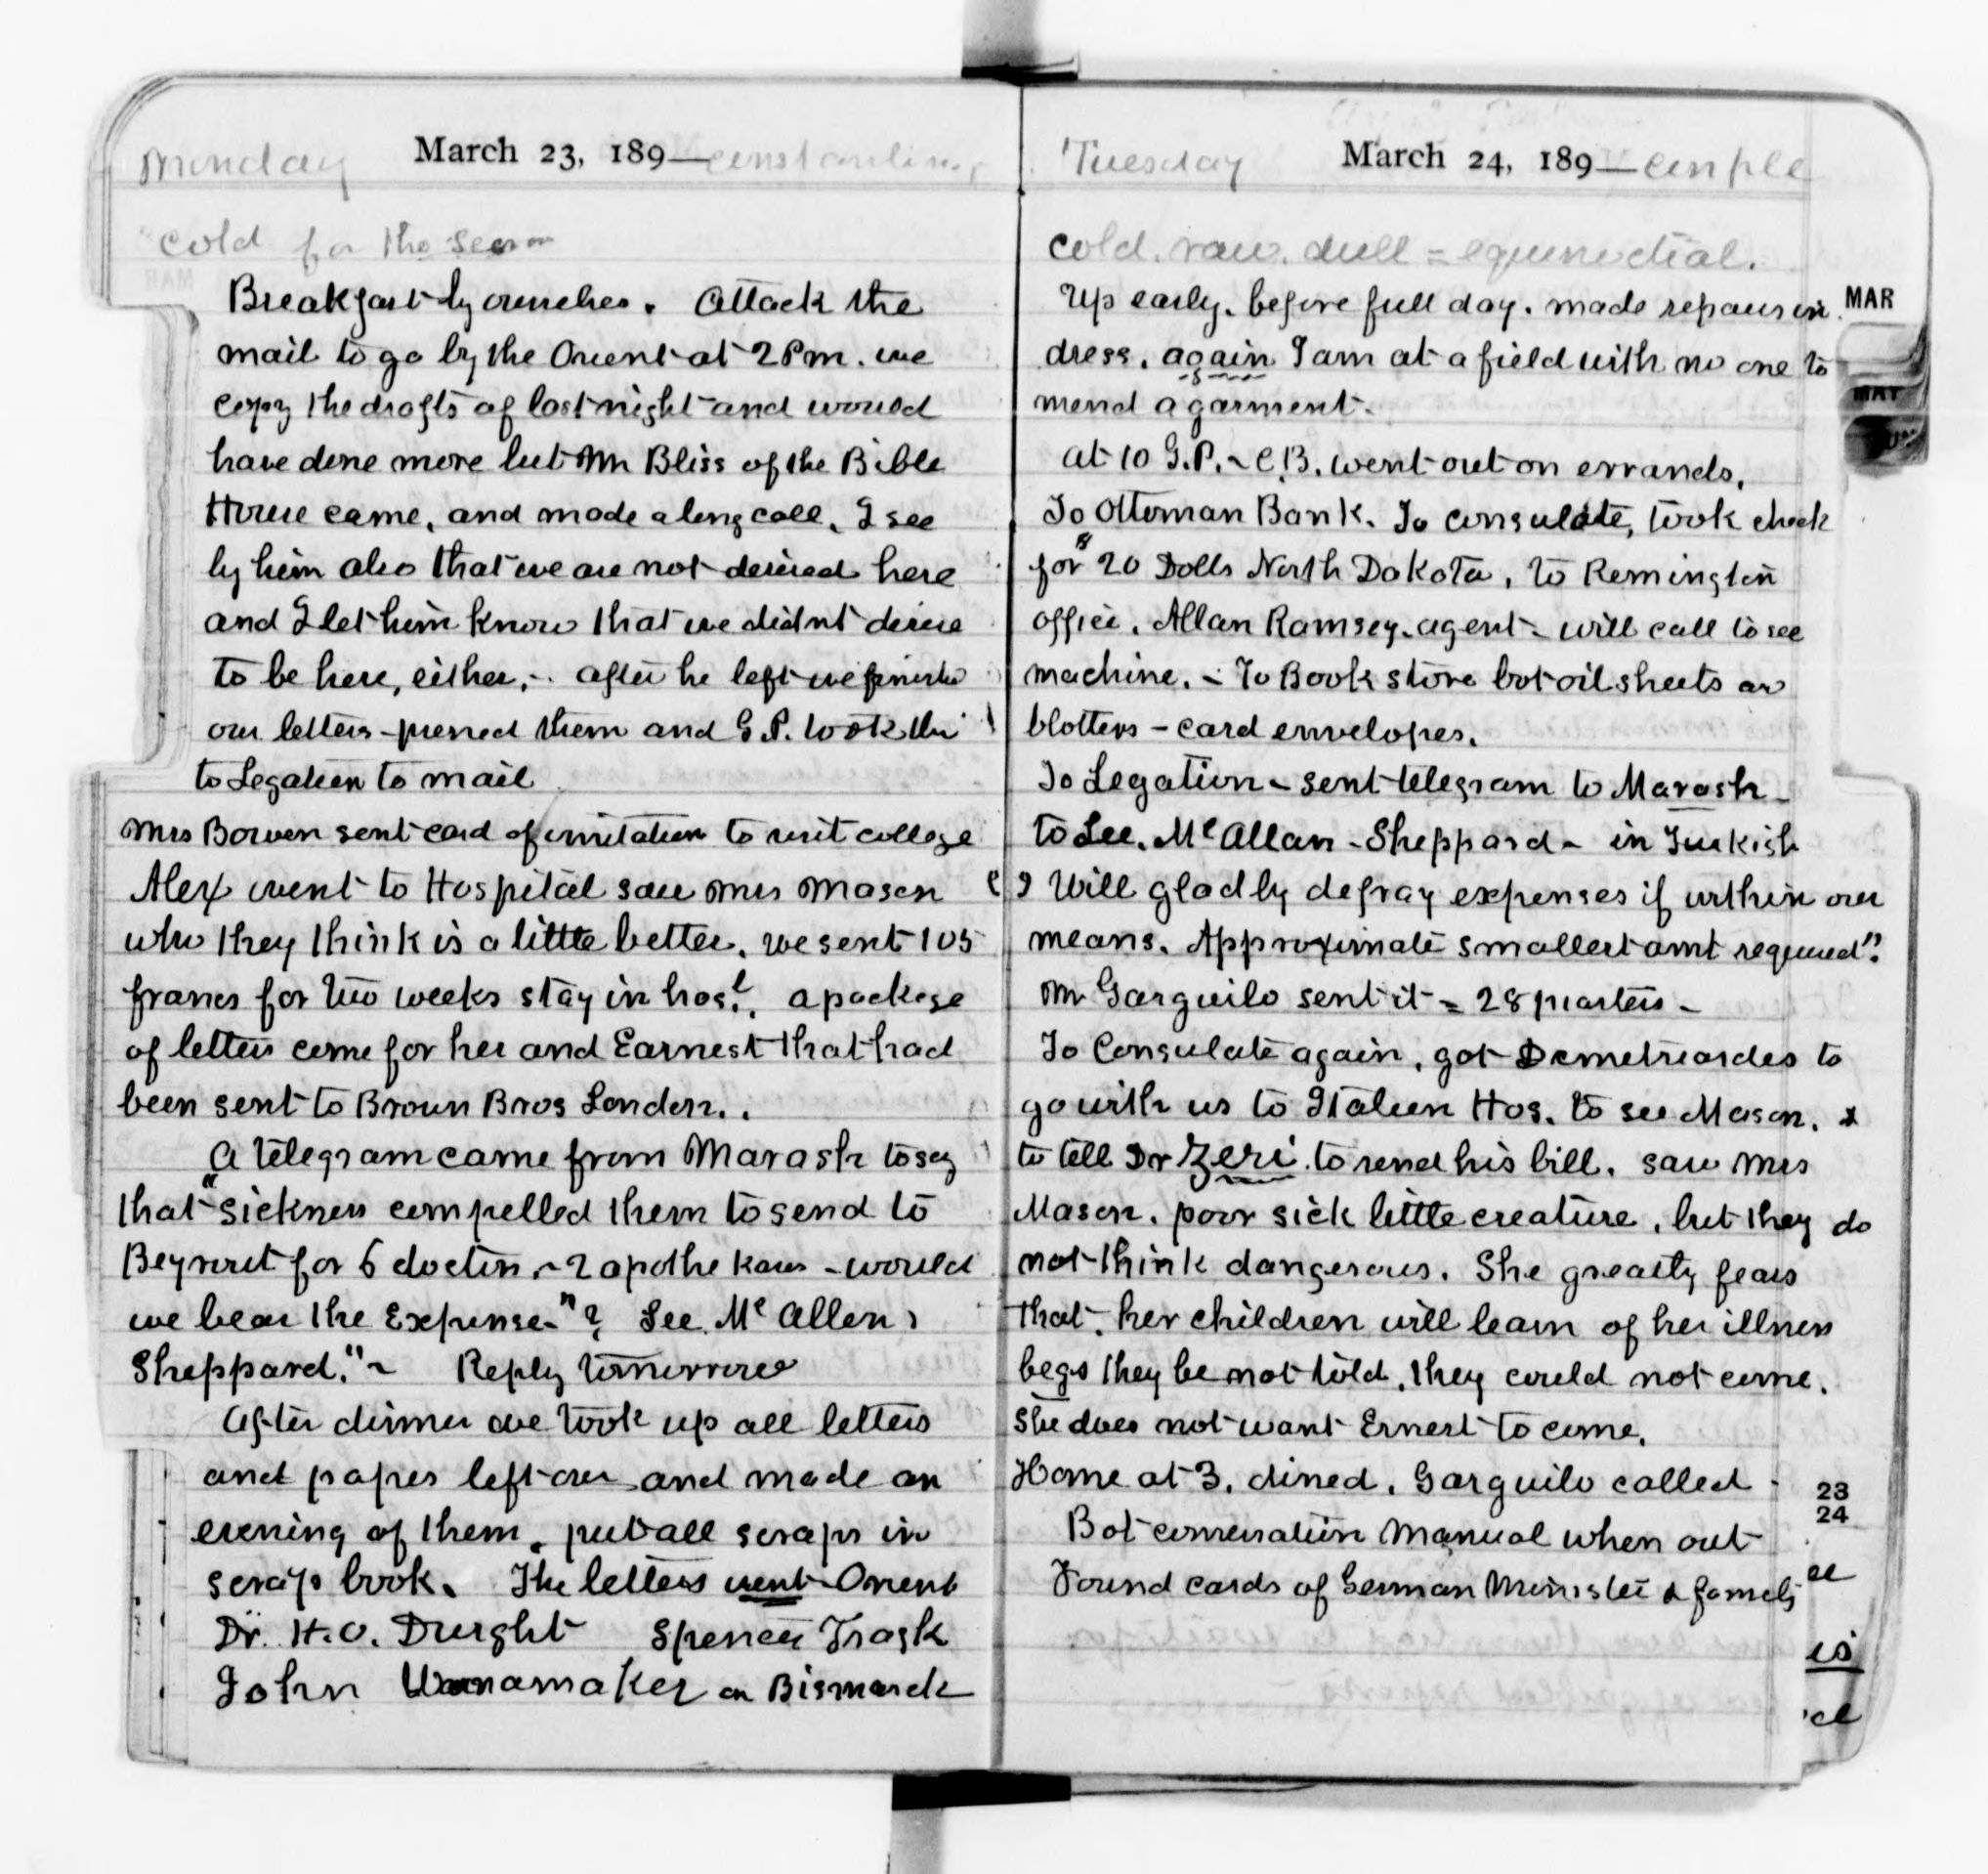 Monday March 23, 189— Constantin
cold for the season
Breakfast by ourselves. Attack the
mail to go by the Orient at 2 P m. we
copy the drafts of last night and would
have done more but Mr Bliss of the Bible
House came, and made a long call, I see
by him also that we are not desired here
and I let him know that we didnt desire
to be here, either, - after he left we finished
our letters - pressed them and G.P. took them
to Legation to mail
Mrs Bowen sent card of invitation to visit college
Alex went to Hospital saw Mrs Mason
who they think is a little better. we sent 105
francs for two weeks stay in hosl. a package
of letters come for her and Earnest that had
been sent to Brown Bros London..
A telegram came from Marash to say
that "sickness compelled them to send to
Beyrout for 6 doctors, ~ 2 apothekaries - would
we bear the Expense"? Lee. Mc Allen,
Sheppard." ~ Reply tomorrow
After dinner we took up all letters
and papers left over and made an
evening of them. put all scraps in
scrap book. The letters went Orient
Dr. H.O. Dwight Spencer Trask
John Wanamaker on Bismarck
Tuesday March 24, 189— ople
cold, raw, dull = equinoctial.
Up early, before full day. made repairs in
dress, again I am at a field with no one to
mend a garment.
at 10 G.P. ~ C.B. went out on errands.
To Ottoman Bank. To consulate, took check
for "20 Dolls North Dakota, to Remington
office. Allan Ramsey. agent - will call to see
machine. - To Book store bot oil sheets and
blotters - card envelopes.
To Legation - sent telegram to Marash -
to Lee. Mc Allan - Sheppard - in Turkish
" Will gladly defray expenses if within our
means. Approximate smallest amt required".
Mr Garguilo sent it = 28 piasters -
To Consulate again, got Demetriardes to
go with us to Italien Hos. to see Mason, &
to tell Dr Zeri to send his bill. saw Mrs
Mason, poor sick little creature, but they do
not think dangerous. She greatly fears
that her children will learn of her illness
begs they be not told, they could not come.
She does not want Ernest to come.
Home at 3. dined. Garguilo called -
Bot conversation Manual when out
Found cards of German Minister & family
MAR
MAY
23
24